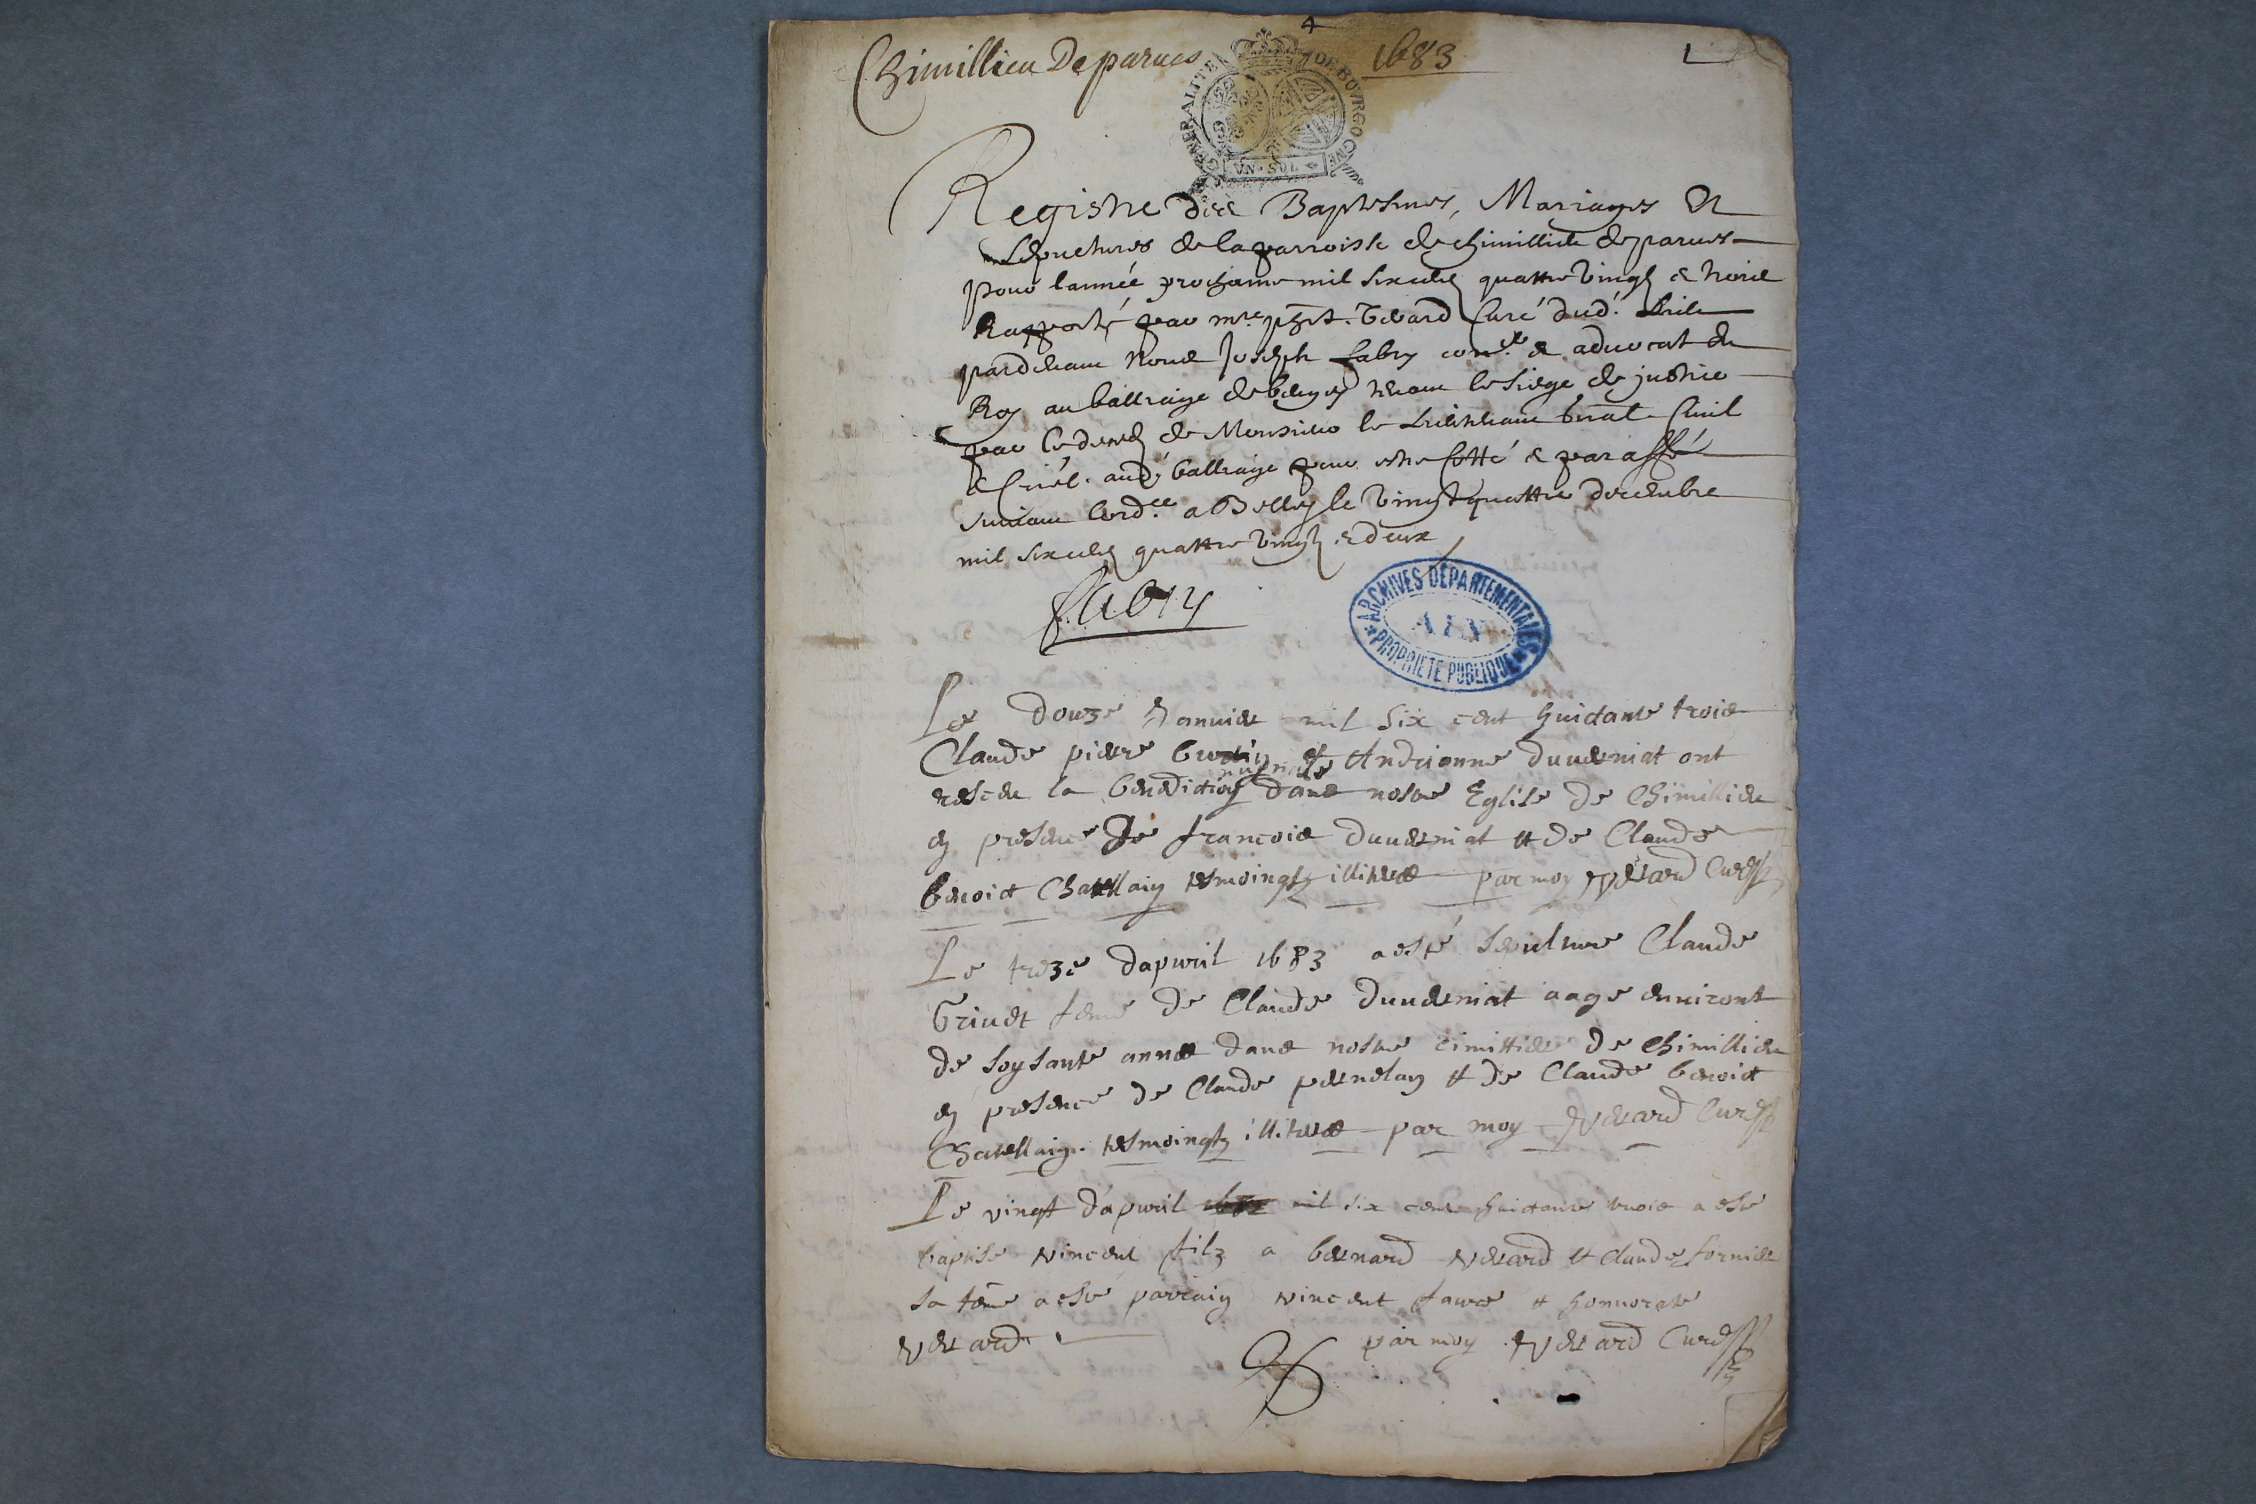 Chimillieu De parues 1683 1
GENERALITE DE BOVRGOGNE
VN · SOL
Registre des Baptesmes, Mariages Et
Sepultures de la parroisse de chimillieu de parues
pour l'année prochaine mil six cens quattre vingts & trois
Rapporté par mre pht. Vevard Curé dud. lieu
pardevant nous Joseph fabry con.er & advocat du
Roy au balliage de bugey tenant le siege de justice
par le deces de Monsieur le Lieutenant gnal Civil
& Criel. aud. balliage pour estre Cotté & paraffé
suivant lord.ce a Belley le vingt quattre decembre
mil six cens quattre vingts & deux
fabry
ARCHIVES DEPARTEMENTALES
AIN
PROPRIETE PUBLIQUE
Le douze Januier mil six cent huictante trois
Claude pierre et Andrianne duuerniat ont
nuptiale
resceu la benediction dans nostre Eglise de Chimillieu
en presence de francois duuerniat et de Claude
benoict Chatellain tesmoingts illiteres par moy Vevard Cure
Le treze dapuril 1683 a esté sepulture Claude
Griuet feme de Claude duuerniat aage enuiront
de soysante annes dans nostre cimittiere de Chimillieu
en presence de Claude pernelay et de Claude benoict
Chatellain tesmoingts illiteres par moy Vevard Cure
Le vingt d'apuril mil six cent huictante trois a esté
baptise vincent filz a bernard vevard et claude fornier
sa feme a esté parrain vincent faure et honnorate
vevard par moy Vevard Cure